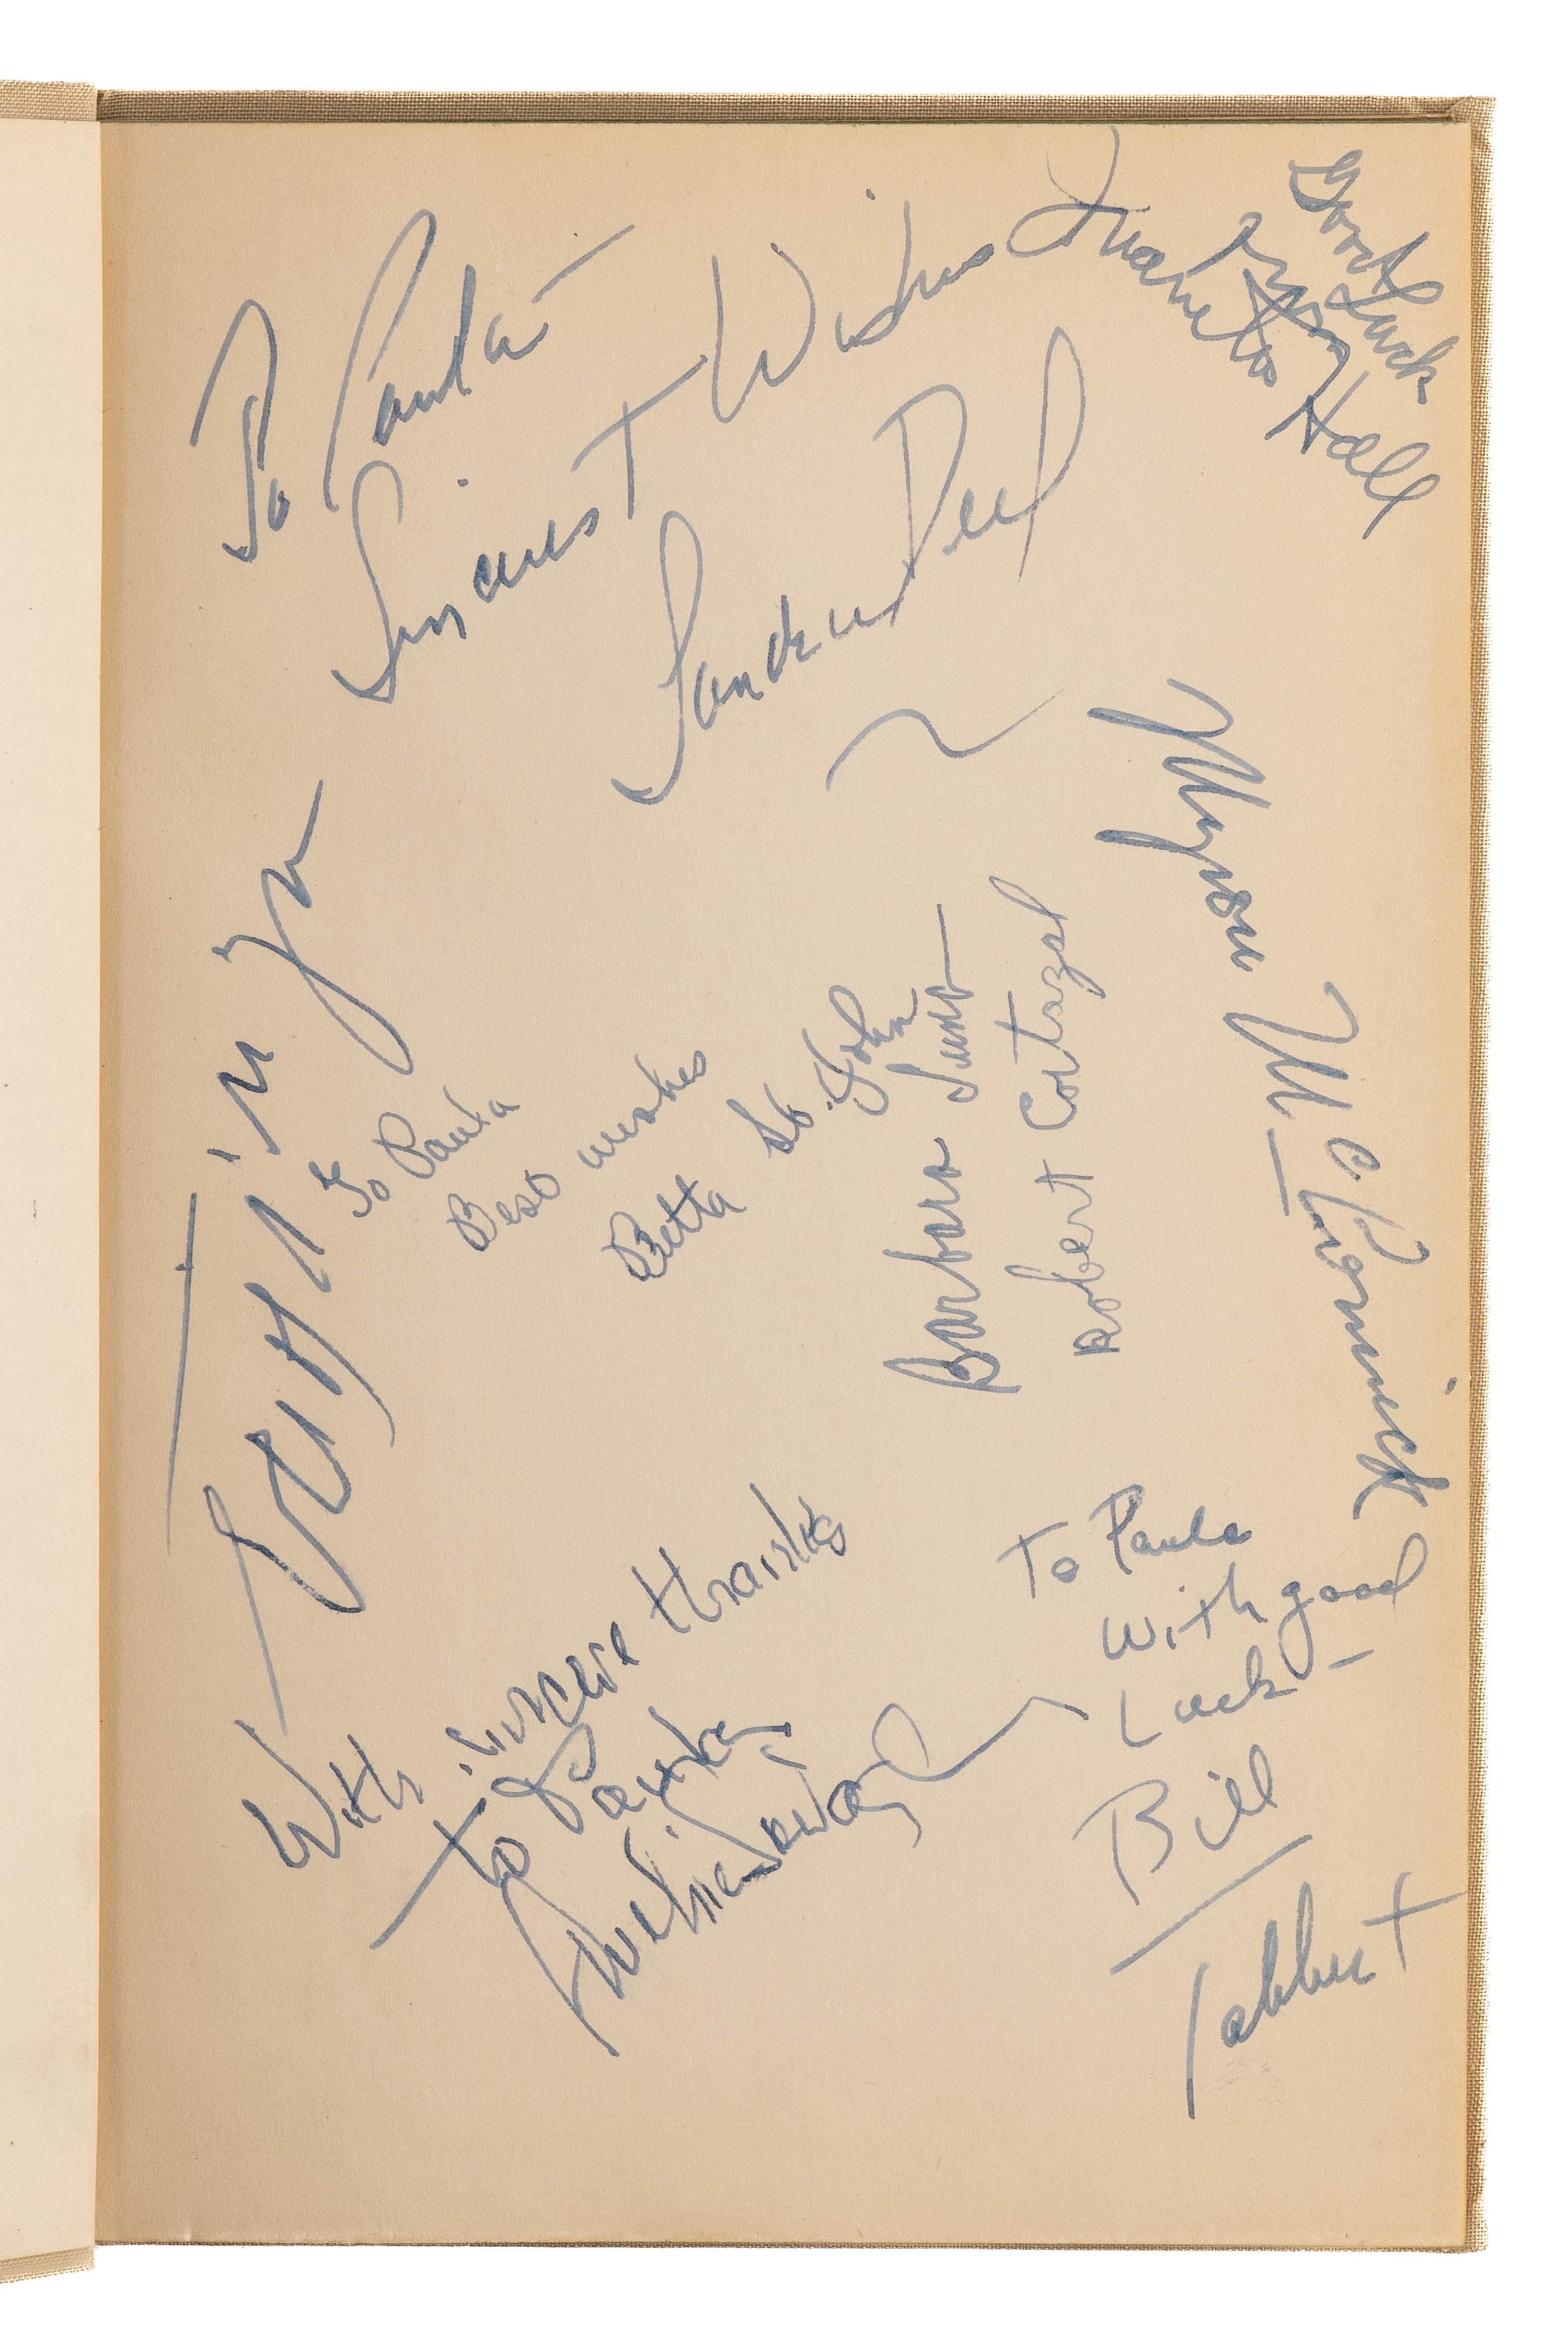 To Paula
Sincerest Wishes
Sandra Deel
Good Luck
Juanita Hall
To Paula
Best wishes
Betta St. John
Barbara Luna
Robert Cortazal
Myron McCormick
With sincere thanks
To Paula
To Paula
With good
Luck –
Bill
Tabbert